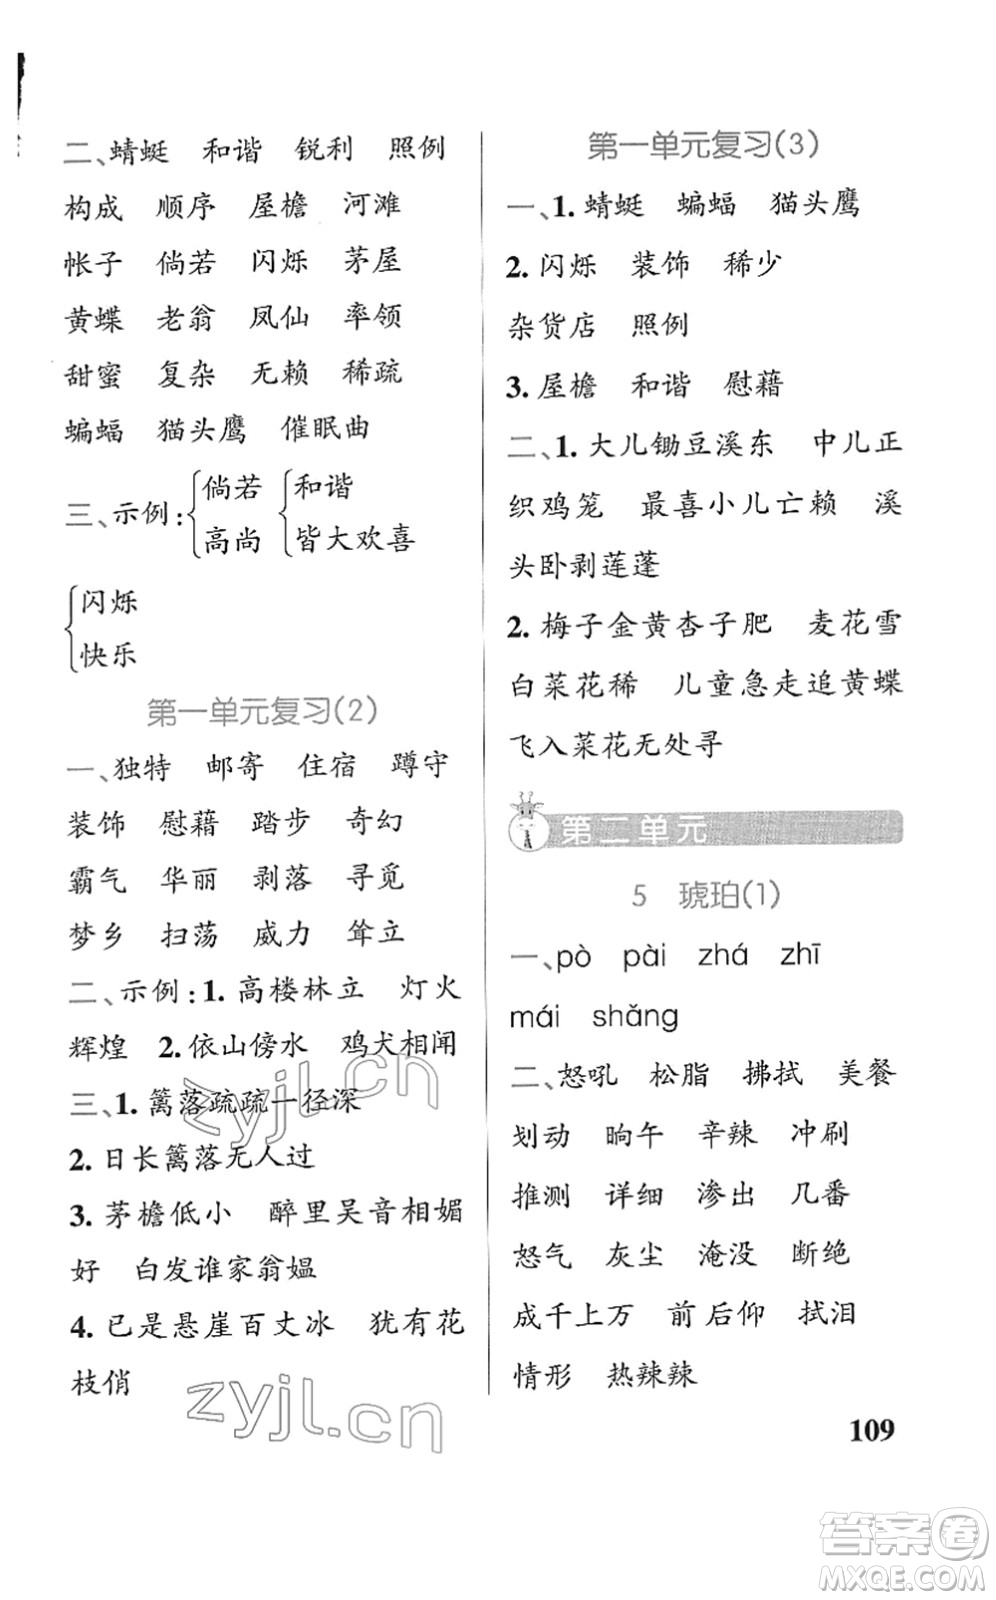 二、蜻蜓 和谐 锐利 照例
构成 顺序 屋檐 河滩
帐子 倘若 闪烁 茅屋
黄蝶 老翁 凤仙 率领
甜蜜 复杂 无赖 稀疏
蝙蝠 猫头鹰 催眠曲
三、示例:{倘若 {和谐
高尚 皆大欢喜
{闪烁
快乐
第一单元复习(2)
一、独特 邮寄 住宿 蹲守
装饰 慰藉 踏步 奇幻
霸气 华丽 剥落 寻觅
梦乡 扫荡 威力 耸立
二、示例:1.高楼林立 灯火
辉煌 2.依山傍水 鸡犬相闻
三、1.篱落疏疏一径深
2.日长篱落无人过
3.茅檐低小 醉里吴音相媚
好 白发谁家翁媪
4.已是悬崖百丈冰 犹有花
枝俏
第一单元复习(3)
一、1.蜻蜓 蝙蝠 猫头鹰
2.闪烁 装饰 稀少
杂货店 照例
3.屋檐 和谐 慰藉
二、1.大儿锄豆溪东 中儿正
织鸡笼 最喜小儿亡赖 溪
头卧剥莲蓬
2.梅子金黄杏子肥 麦花雪
白菜花稀 儿童急走追黄蝶
飞入菜花无处寻
第二单元
5 琥珀(1)
一、pò pài zhá zhī
mái shǎng
二、怒吼 松脂 拂拭 美餐
划动 晌午 辛辣 冲刷
推测 详细 渗出 几番
怒气 灰尘 淹没 断绝
成千上万 前后仰 拭泪
情形 热辣辣
109
zyjl.cn
zyjl.cn
答案卷
MXQE.COM